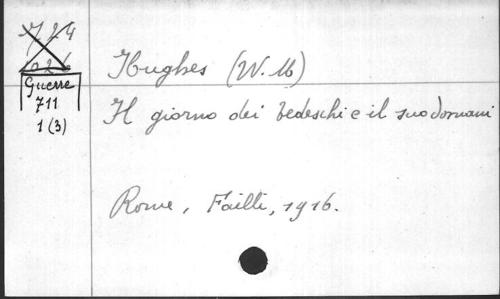 724
026
Guerre
711
1 (3)
Hughes (W. M)
Il giorno dei tedeschi e il suo domani
Rome, Failli, 1916.